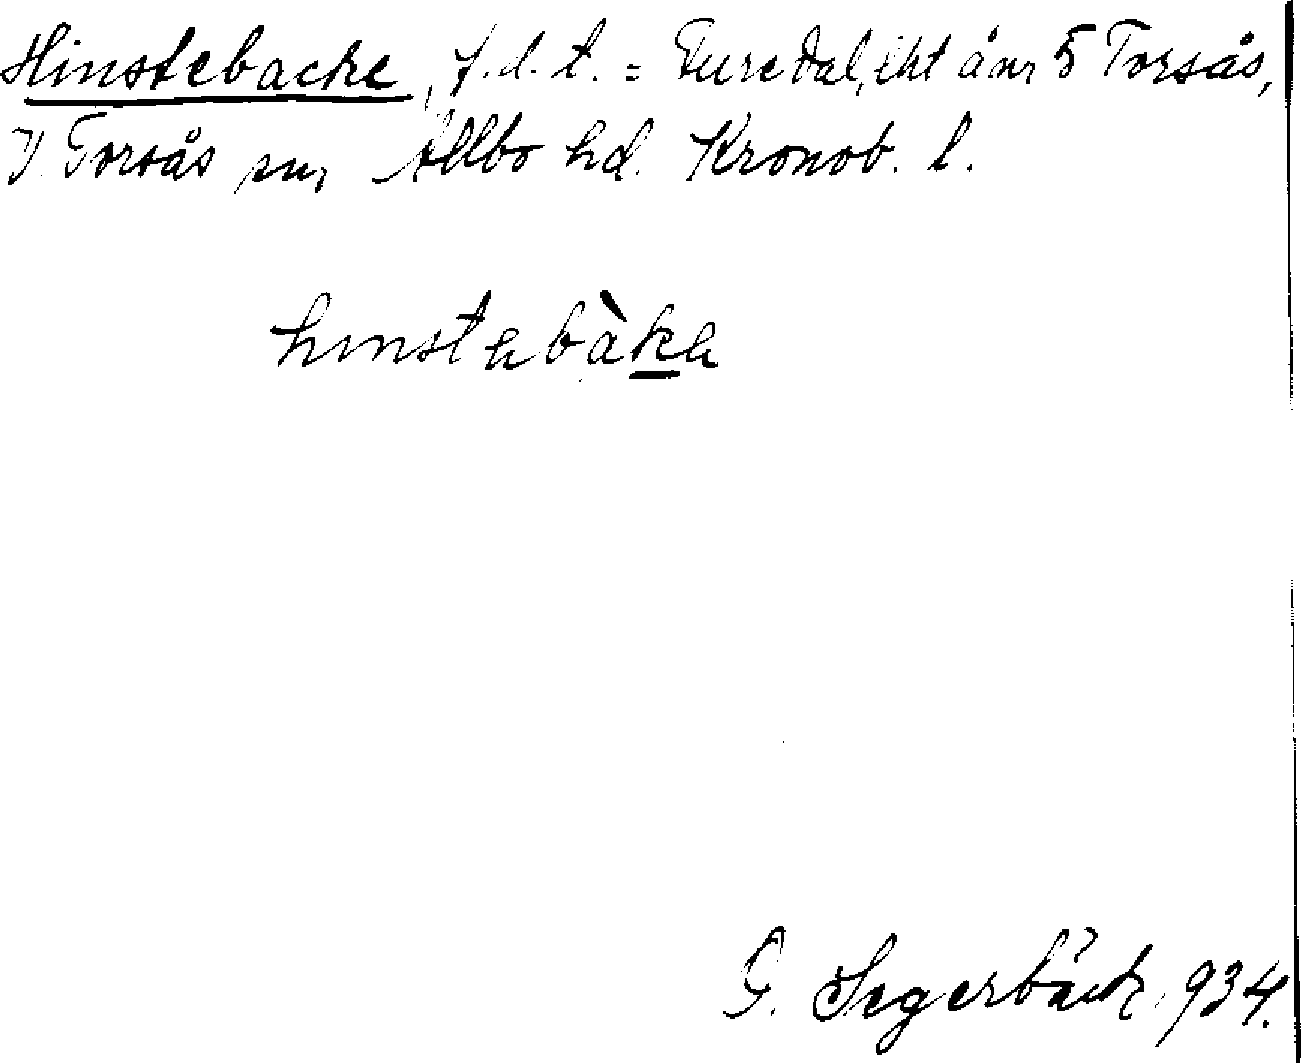 Hinstebacke, f.d. t. = Turedal, lht å nr 5 Torsås,
V. Torsås sn, Allbo hd. Kronob. l.
hinstabàka
G. Segerbäck, 934.